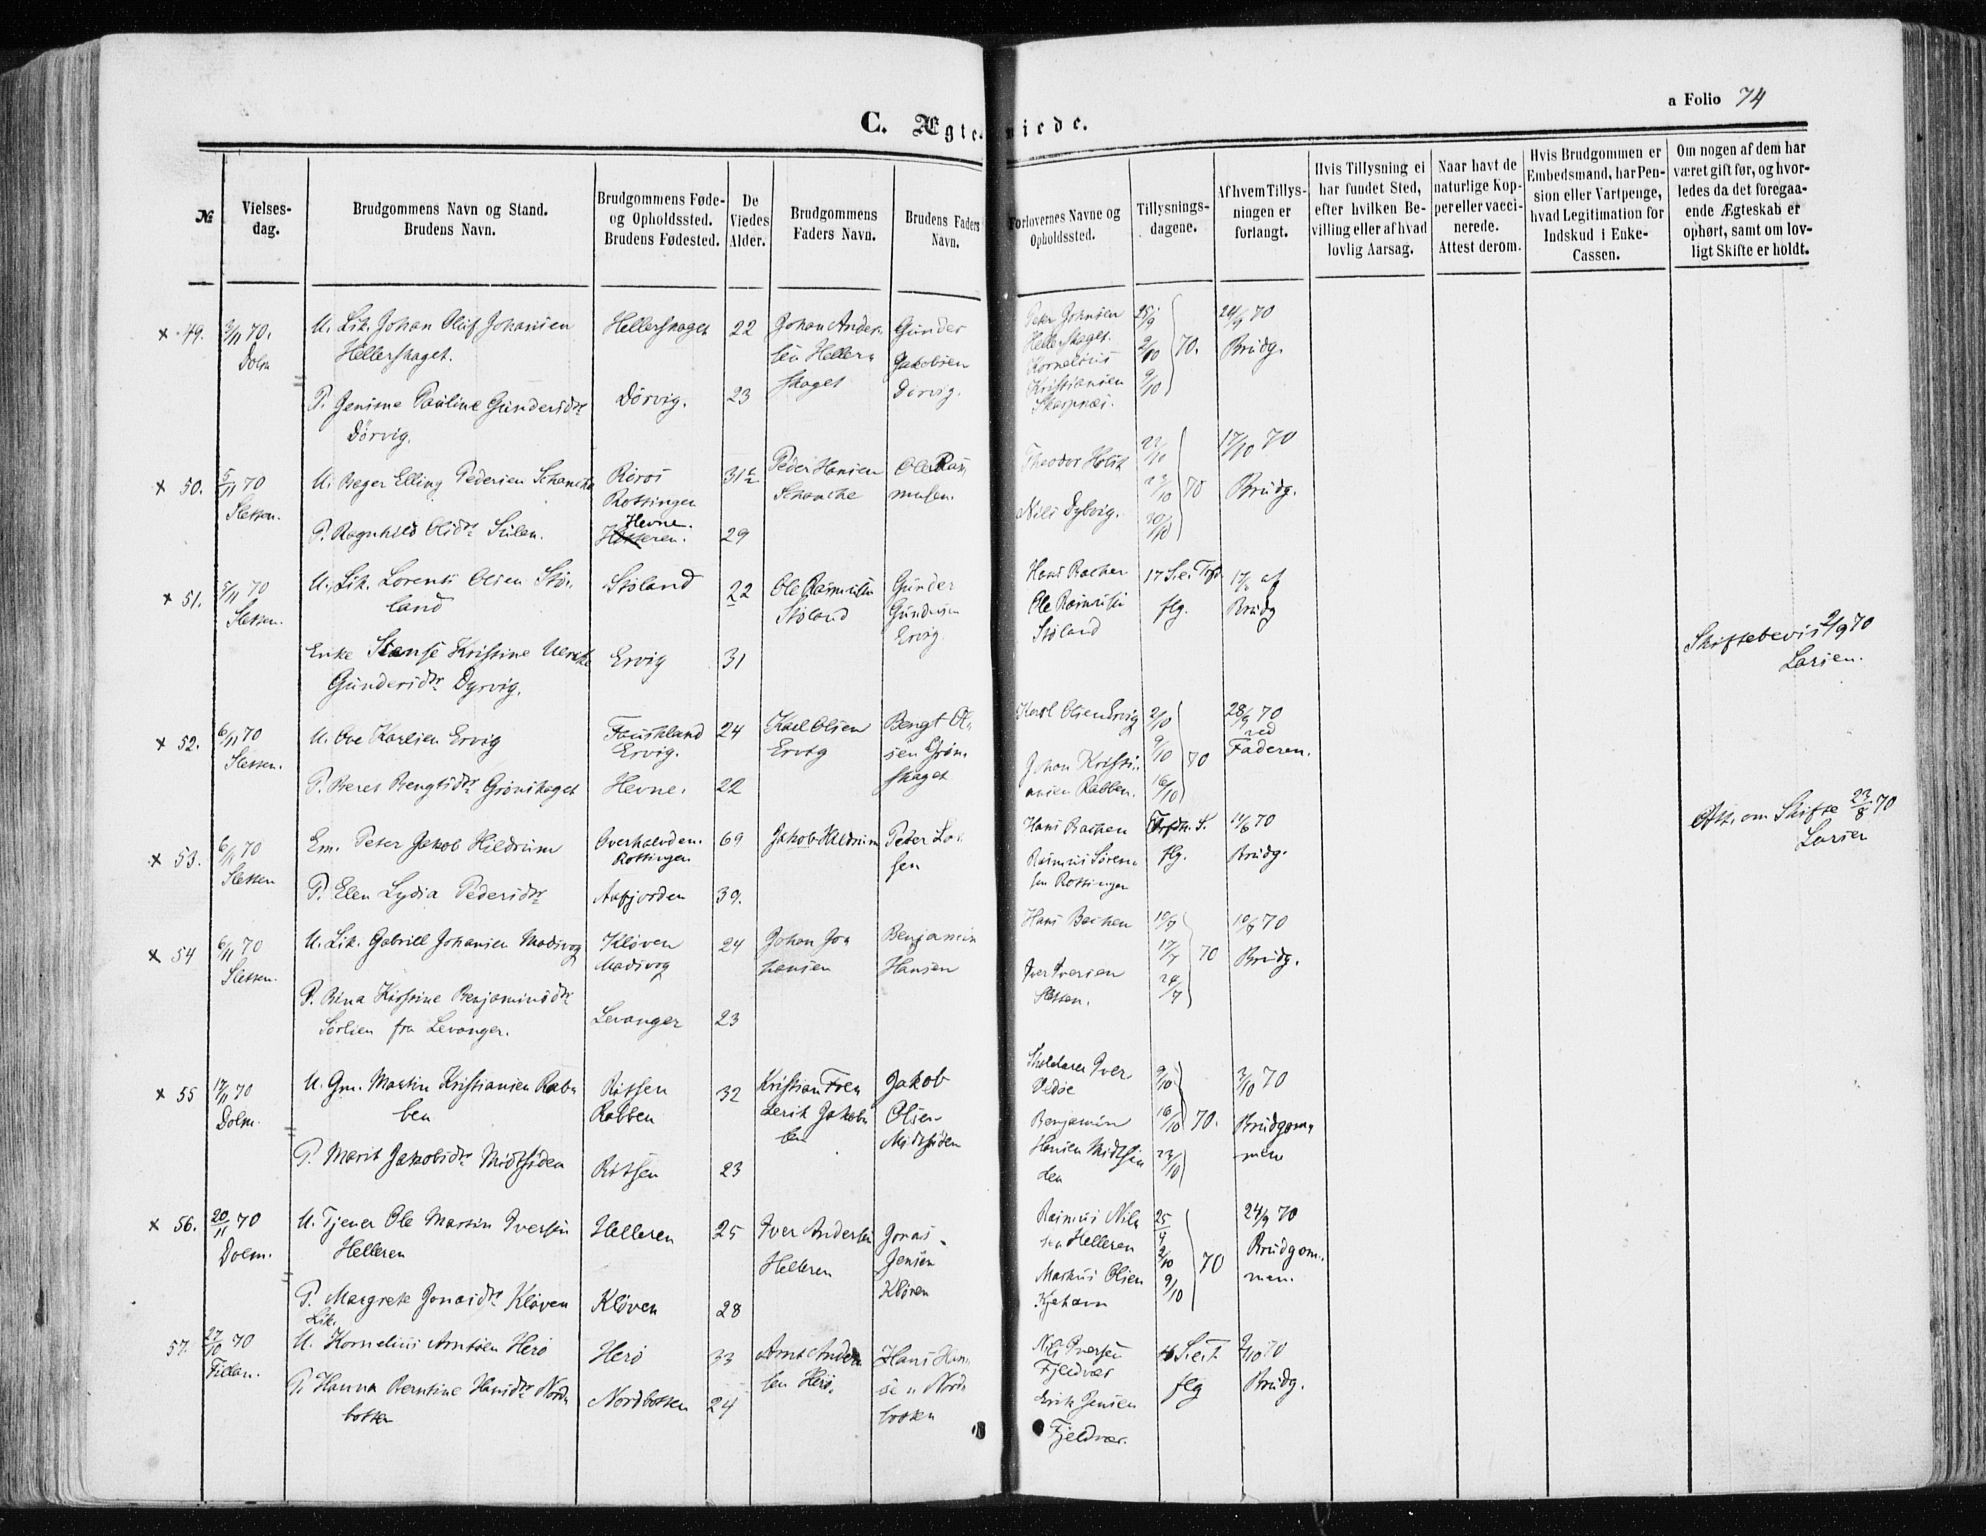 a Folio 74
C. Ægte viede.
№
Vielses-
dag.
Brudgommens Navn og Stand.
Brudens Navn.
Brudgommens Føde-
og Opholdssted.
Brudens Fødested.
De
Viedes
Alder.
Brudgommens
Faders Navn.
Brudens Faders
Navn.
Forlovernes Navne og
Opholdssted.
Tillysnings-
dagene.
Af hvem Tillys-
ningen er
forlangt.
Hvis Tillysning ei
har fundet Sted,
efter hvilken Be-
villing eller af hvad
lovlig Aarsag.
Naar havt de
naturlige Kop-
per eller vacci-
nerede.
Attest derom.
Hvis Brudgommen er
Embedsmand, har Pen-
sion eller Vartpenge,
hvad Legitimation for
Indskud i Enke-
Cassen.
Om nogen af dem har
været gift før, og hvor-
ledes da det foregaa-
ende Ægteskab er
ophørt, samt om lov-
ligt Skifte er holdt.
x 49.
/11 70.
Dolm
U. Lik. Johan Oluf Johansen
Hellerskaget.
P. Jensine Pauline Gundersdtr
Dörvig.
Hellerskaget
Dörvig.
22
23
Johan Ander-
sen Heller-
skaget
Gunder
Jakobsen
Dörvig.
Peter Johnsen
Hellerskaget.
Kornelius
Kristiansen
Skarpnæs.
25/9
2/10
9/10
70.
24/9 70
Brudg.
x 50.
5/11 70
Sletten.
U. Beger Elling Pedersen Schanche
P. Ragnhild Olsdtr Stølen.
Röros
Rottingen
Hevne.
31½
29
Peder Hansen
Schanche
Ole Ras-
musen.
Theodor Holst
Nils Dylvig.
23/10
30/10
70
17/10 70
Brudg.
x 51.
5/11 70
Sletten.
U. Lik. Lorents Olsen Stö-
land
Enke Kristine
Gundersdtr Dyrvig.
Stöland
Ervig
22
31
Ole Rasmusen
Stöland
Gunder
Gundersen
Ervig
Hans Bachen
Ole Rasmusen
Stöland
17 S. e. Tref.
flg.
17/ af
Brudg
Skiftebevis 2/9 70
Larsen.
x 52.
6/11 70
Sletten.
U. Ove Karlsen Ervig
P. Beret Bengtsdtr Grönskaget
Faustland
Ervig.
Hevne.
24
22
Karl Olsen
Ervig
Bengt Ol-
sen Grön-
skaget
Karl Olsen Ervig
Johan Kristi-
ansen Rabben.
2/10
9/10
16/10
70
28/9 70
ved
Faderen.
x 53.
6/11 70
Sletten
Em. Peter Jakob Hildrum
P. Elen Lydia Pedersdtr
Overhalvden.
Rottingen
Aafjorden
69
39.
Jakob Hildrum
Peter Lar-
sen
Hans Bachen
Rasmus Sören-
sen Rottingen
flg.
/6 70
Brudg.
Att. om Skifte 23/8 70
Larsen
x 54
6/11 70
Sletten.
U. Lik. Gabriel Johansen Madsvog
P. Rina Kirstine Benjaminsdtr
Sörlien fra Levanger.
Klöven
Madsvog
Levanger
24
23
Johan Jo-
hansen
Benjamin
Hansen
Hans Bachen
Iver Iversen
Sletten.
10/7
17/7
24/7
70
10/7 70
Brudg.
x 55
17/11 70
Dolm.
U. Gm. Martin Kristiansen Rab-
ben
P. Marit Jakobsdtr Midtsiden
Ritsen
Rabben
Ritsen
32
23
Kristian Fred-
derik Jakob-
sen
Jakob
Olsen
Midtsiden
Skolelærer Iver
Vedöe
Benjamin
Hansen Midtsi-
den
9/10
16/10
23/10
70.
/10 70
Brudgom-
men
x 56.
20/11 70
Dolm.
U. Tjener Ole Martin Iversen
Helleren
P. Margrete Jonasdtr Klöven
Helleren
Klöven
25
28
Iver Andersen
Helleren
Jonas
Jensen
Klöven
Rasmus Nil-
sen Helleren
Markus Olsen
Kjehavn
25/9
2/10
9/10
70
24/9 70
Brudgom-
men.
57.
27/10 70
Fillan.
Lik.
U. Kornelius Arntsen Herö
P. Hanna Berntine Hansdtr Nord-
botten
Herö
Nordbotten
33
24
Arnt Ander-
sen Herö.
Hans Han-
sen Nord-
botten
Nils Iversen
Fjeldvær
Erik Jensen
Fjeldvær.
S. e. T.
flg
/10 70
Brudg.